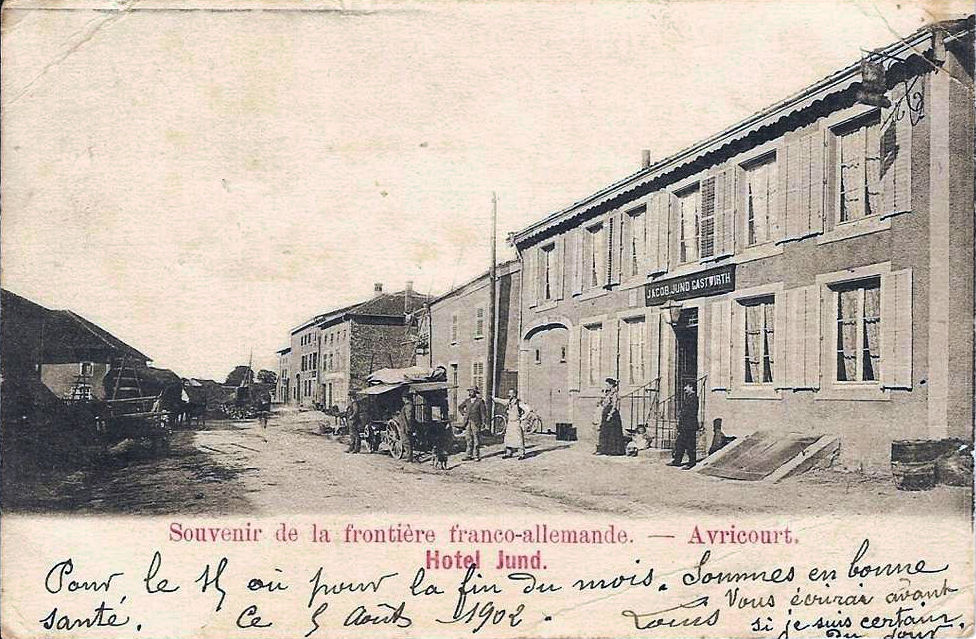 JACOB JUND GASTWIRTH
Souvenir de la frontière franco-allemande. — Avricourt.
Hotel Jund.
Pour le 15 où pour la fin du mois. Sommes en bonne
santé. Ce 5 Août 1902 Louis
Vous écrirai avant
si je suis certain.
Du jour